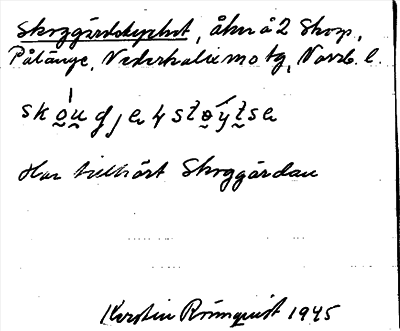 Skoggårdstycket, åker å 2 Skogs,
Pålänge, Nederkalix mo tg, Norrb. l.
Har tillhört Skoggårdan
Kerstin Rönnqvist 1945